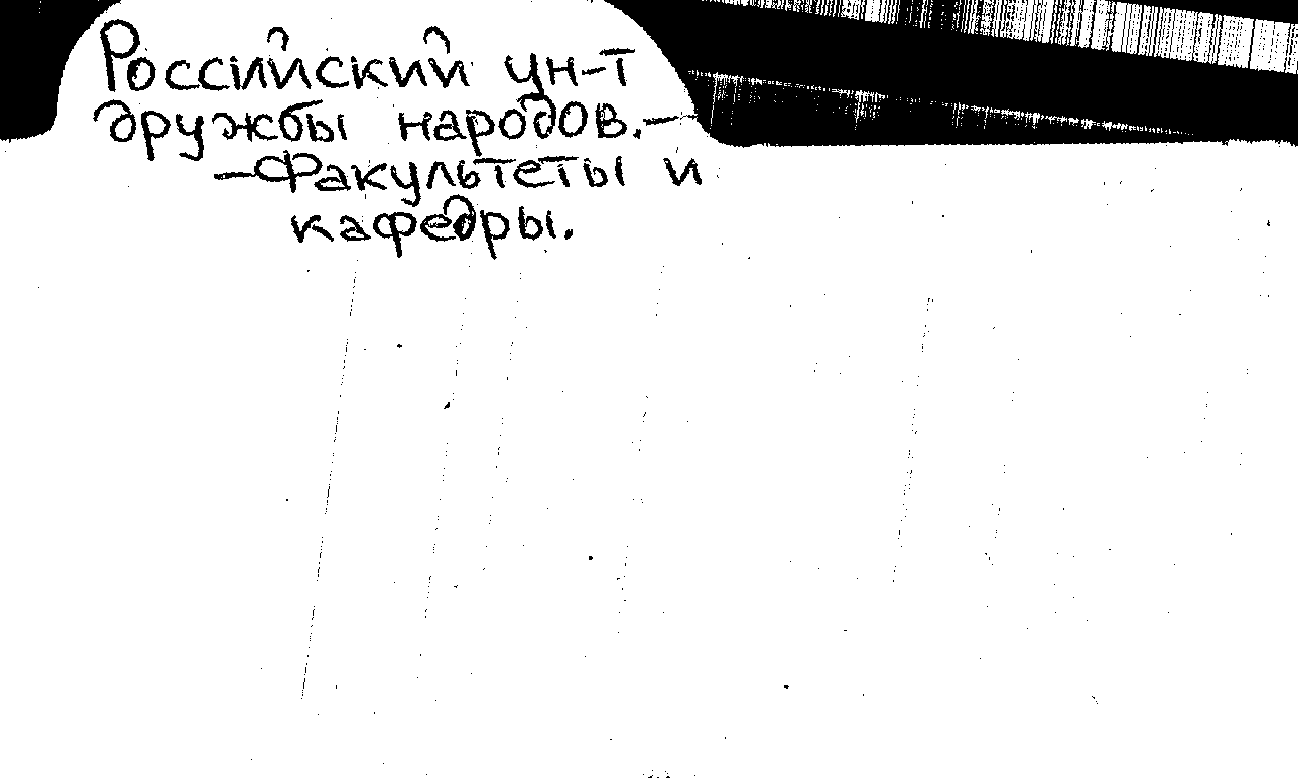 Российский ун-т
дружбы народов.—
—Факультеты и
кафедры.